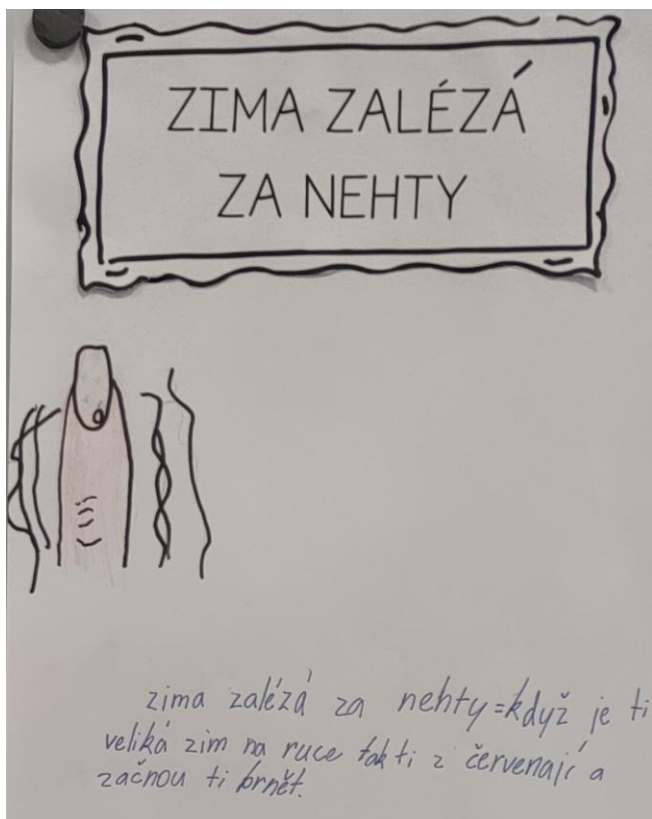 ZIMA ZALÉZÁ
ZA NEHTY
zima zalézá za nehty=když je ti
veliká zim na ruce tak ti z červenají a
začnou ti brnět.